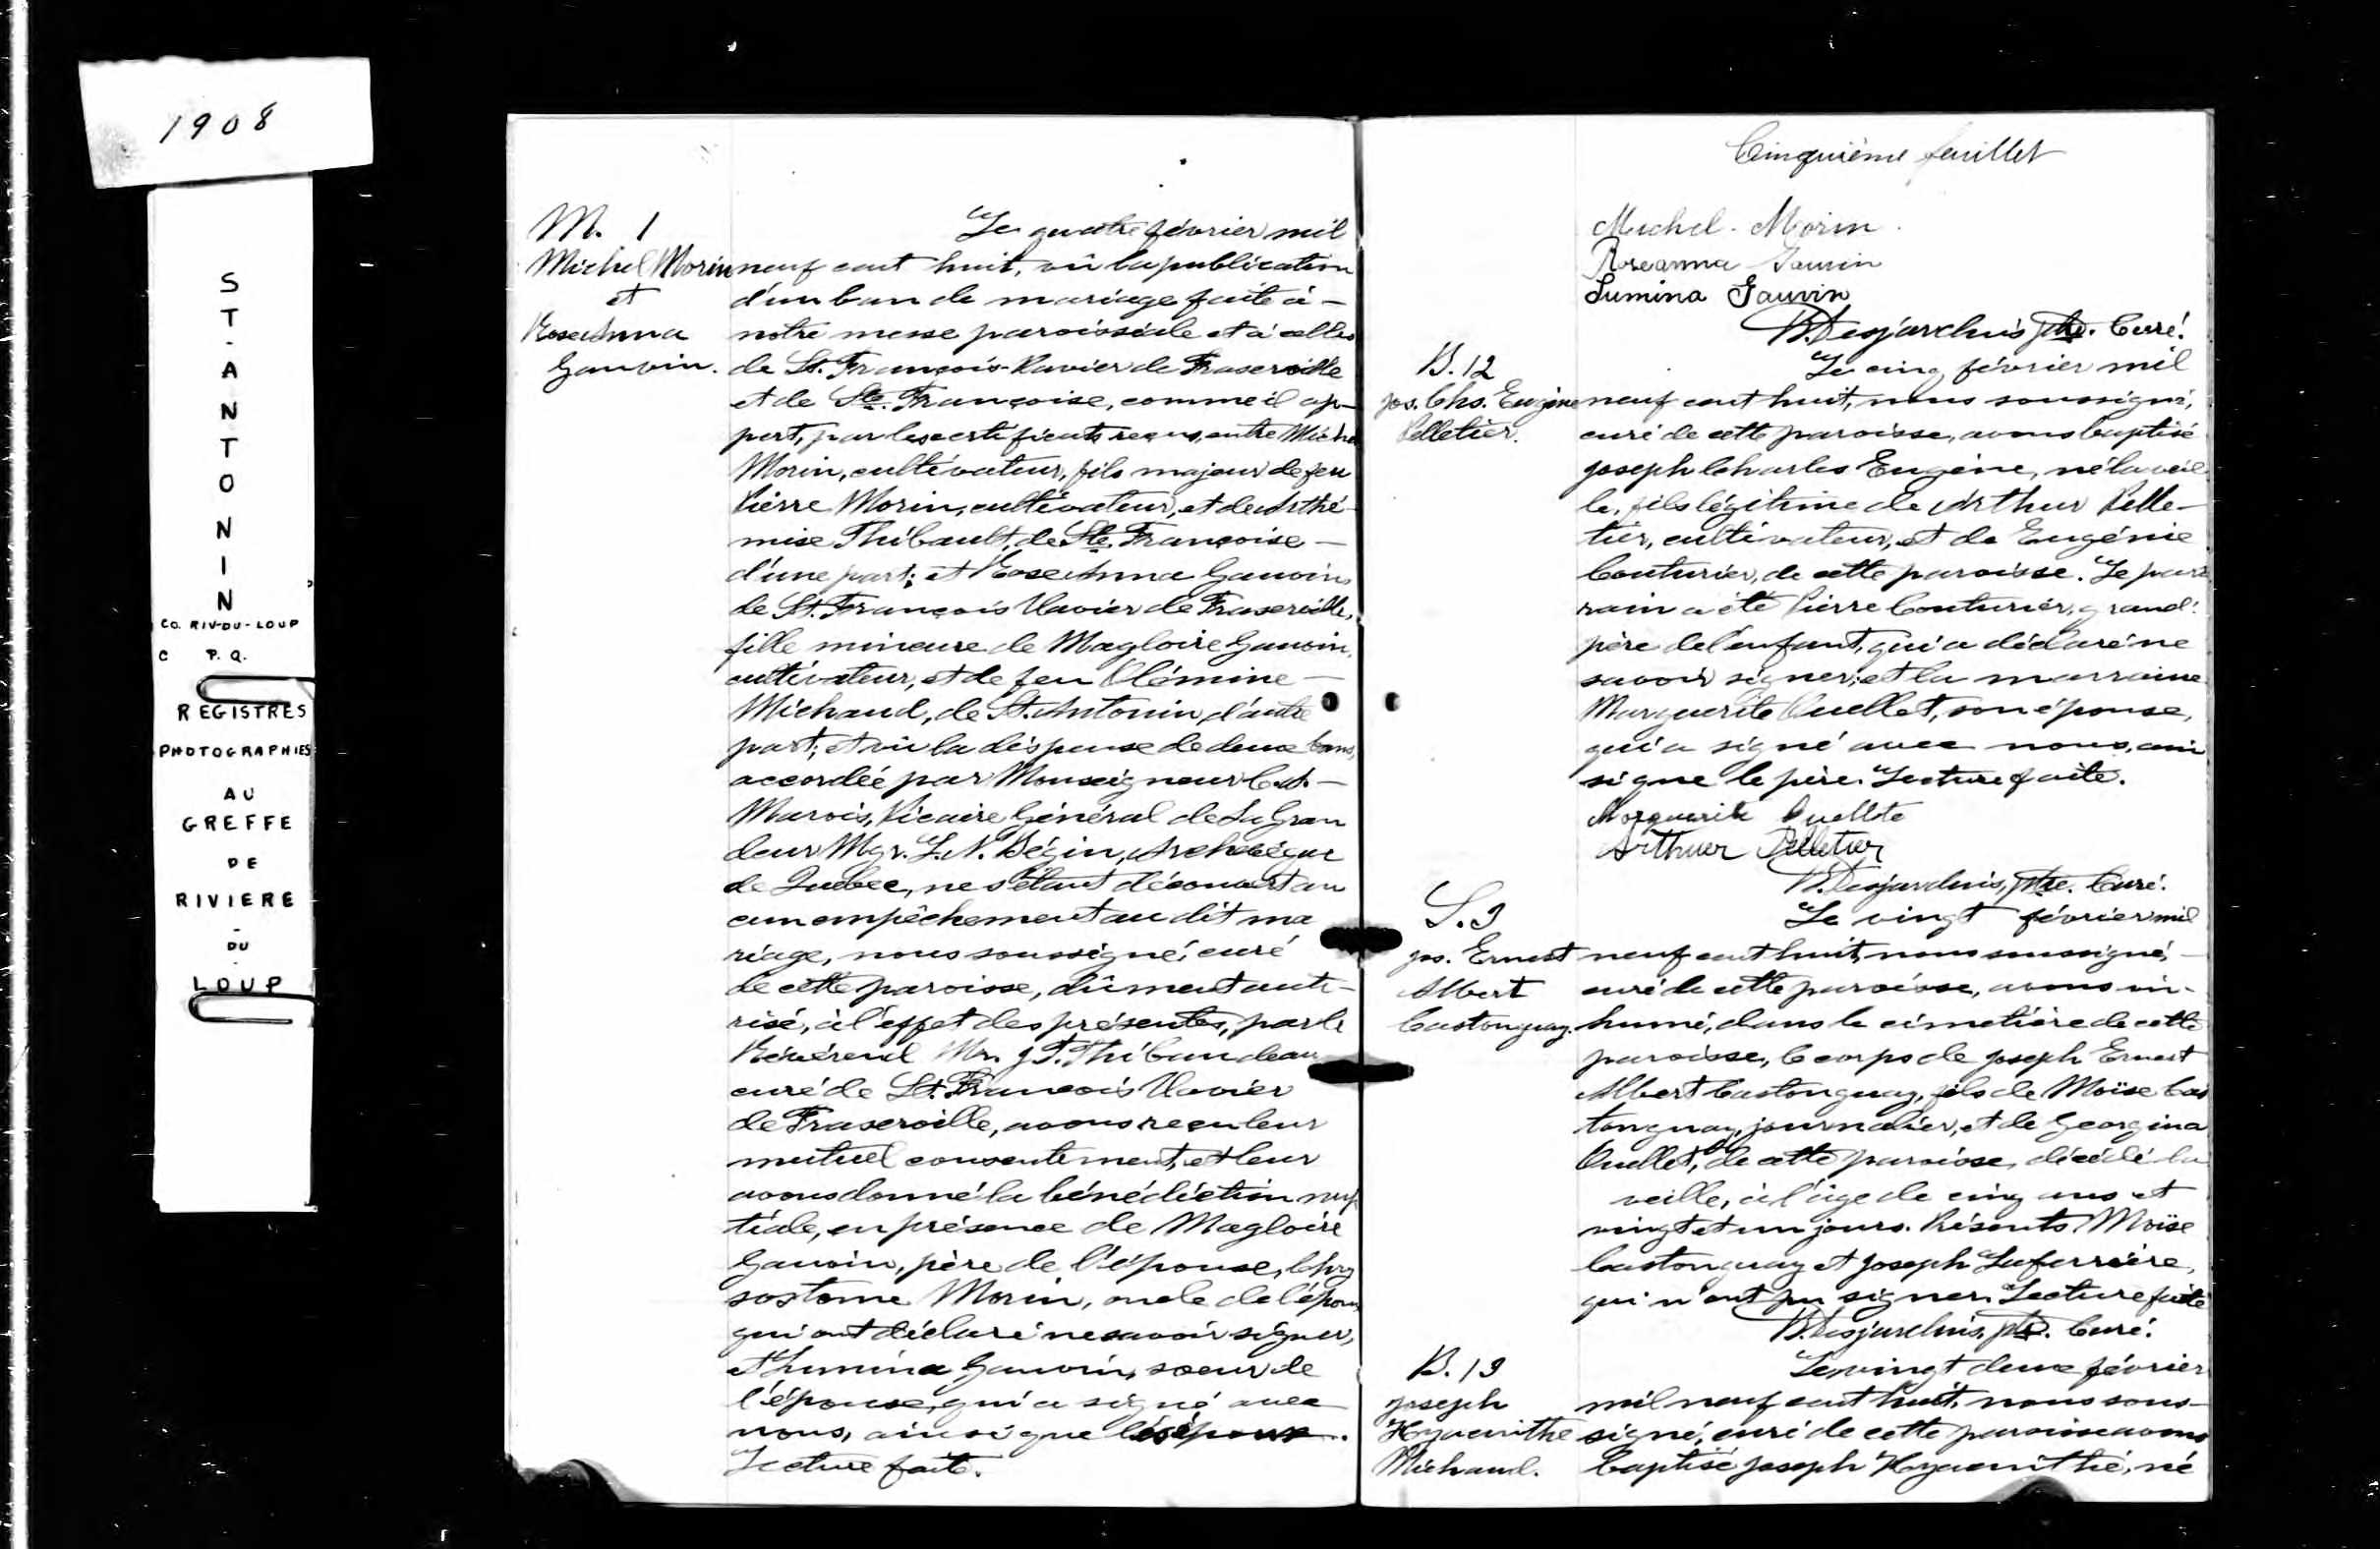 1908
ST-ANTONIN
CO. RIV-DU-LOUP
C P.Q.
REGISTRES
PHOTOGRAPHIES
AU
GREFFE
DE
RIVIERE
-
DU
-
LOUP
M. 1
Michel Morin
et
Rose Anna
Gauvin.
Le quatre février mil
neuf cent huit, vû la publication
d'un ban de mariage faite à
notre messe paroissiale et à celles
de St. François-Xavier de Fraserville
et de Ste. Françoise, comme il ap-
pert, par les certificats reçus, entre Michel
Morin, cultivateur, fils majeur de feu
Pierre Morin, cultivateur, et de Arthé-
mise Thibault, de Ste. Françoise
d'une part; et Rose Anna Gauvin
de St. François Xavier de Fraserville,
fille mineure de Magloire Gauvin,
cultivateur, et de feu Olémine
Michaud, de St. Antonin, d'autre
part; et vû la dispense de deux bans,
accordée par Monseigneur C. A.
Marois, Vicaire Général de Sa Gran
deur Mgr. L. N. Bégin, Archevêque
de Québec, ne s'étant découvert au
cun empêchement au dit ma
riage, nous soussigné, curé
de cette paroisse, dûment auto-
risé, à l'effet des présentes, par le
Révérend Mr. J. T. Thibaudeau
curé de St. François Xavier
de Fraserville, avons reçu leur
mutuel consentement, et leur
avons donné la bénédiction nup
tiale, en présence de Magloire
Gauvin, père de l'épouse, Chry
sostome Morin, oncle de l'époux
qui ont déclaré ne savoir signer,
et Lumina Gauvin, soeur de
l'épouse, qui a signé avec
nous, ainsi que les époux.
Lecture faite.
Cinquième feuillet
Michel Morin
Roseanna Gauvin
Lumina Gauvin
Desjardins ptre. Curé.
B. 12
Jos. Chs. Eugène
Pelletier.
Le cinq février mil
neuf cent huit, nous soussigné,
curé de cette paroisse, avons baptisé
Joseph Charles Eugène, né la veil
le, fils légitime de Arthur Pelle-
tier, cultivateur, et de Eugénie
Couturier, de cette paroisse. Le par
rain a été Pierre Couturier, grand-
père de l'enfant, qui a déclaré ne
savoir signer; et la marraine
Marguerite Ouellet, son épouse,
qui a signé avec nous, ain
si que le père. Lecture faite.
Marguerite Ouellete
Arthur Pelletier
Desjardins, ptre. Curé.
S. 3
Jos. Ernest
Albert
Castonguay.
Le vingt février mil
neuf cent huit, nous soussigné,
curé de cette paroisse, avons in-
humé, dans le cimetière de cette
paroisse, le corps de Joseph Ernest
Albert Castonguay, fils de Moïse Cas
tonguay, journalier, et de Georgina
Ouellet, de cette paroisse, décédé la
veille, à l'âge de cinq ans et
vingt et un jours. Présents Moïse
Castonguay et Joseph Laferrière,
qui n'ont pu signer. Lecture faite
Desjardins, ptre. Curé.
B. 13
Joseph
Hyacinthe
Michaud.
Le vingt deux février
mil neuf cent huit, nous sous-
signé, curé de cette paroisse avons
baptisé Joseph Hyacinthe, né